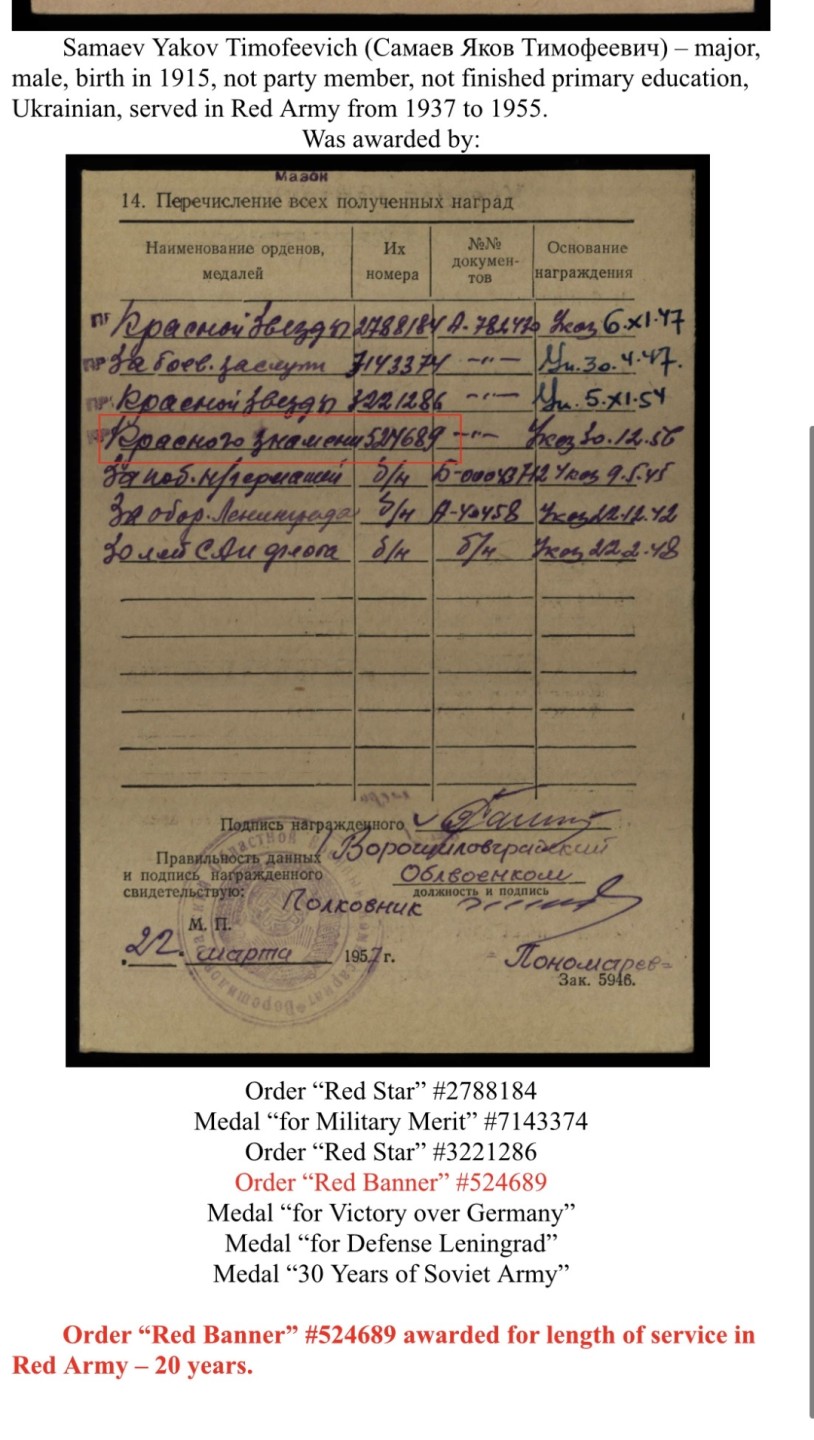 Samaev Yakov Timofeevich (Самаев Яков Тимофеевич) – major,
male, birth in 1915, not party member, not finished primary education,
Ukrainian, served in Red Army from 1937 to 1955.
Was awarded by:
Мазон
14. Перечисление всех полученных наград
Наименование орденов, медалей | Их номера | №№ докумен-тов | Основание награждения
Красной Звезды 2788184 А-782470 Указ 6.XI.47
За боев. заслуги 7143374 -"- Ук. 30.4.47.
Красной Звезды 3221286 -"- Ук. 5.XI.54
Красного Знамени 524689 -"- Указ 30.12.56
За поб. н/германией б/н Указ 9.5.45
За обор. Ленинграда б/н А-40458 Указ 22.12.42
30 лет СА и флота б/н б/н Указ 22.2.48
Подпись награжденного
Правильность данных Ворошиловградский
и подпись награжденного Облвоенком
свидетельствую: должность и подпись
Полковник
М. П.
22 марта 1957 г. Пономарев
Зак. 5946.
Order “Red Star” #2788184
Medal “for Military Merit” #7143374
Order “Red Star” #3221286
Order “Red Banner” #524689
Medal “for Victory over Germany”
Medal “for Defense Leningrad”
Medal “30 Years of Soviet Army”
Order “Red Banner” #524689 awarded for length of service in
Red Army – 20 years.